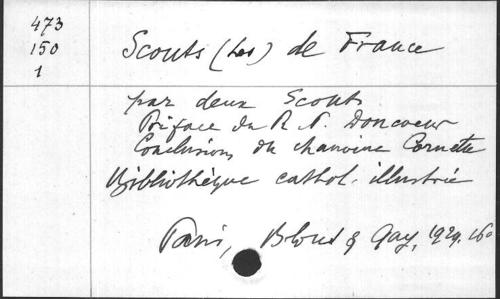 473
150
1
Scouts (Les) de France
par deux Scouts
Préface du R. P. Doncoeur
Conclusion du chanoine Cornette
Bibliothèque cathol. illustrée
Paris, Bloud & Gay, 1929. 16o